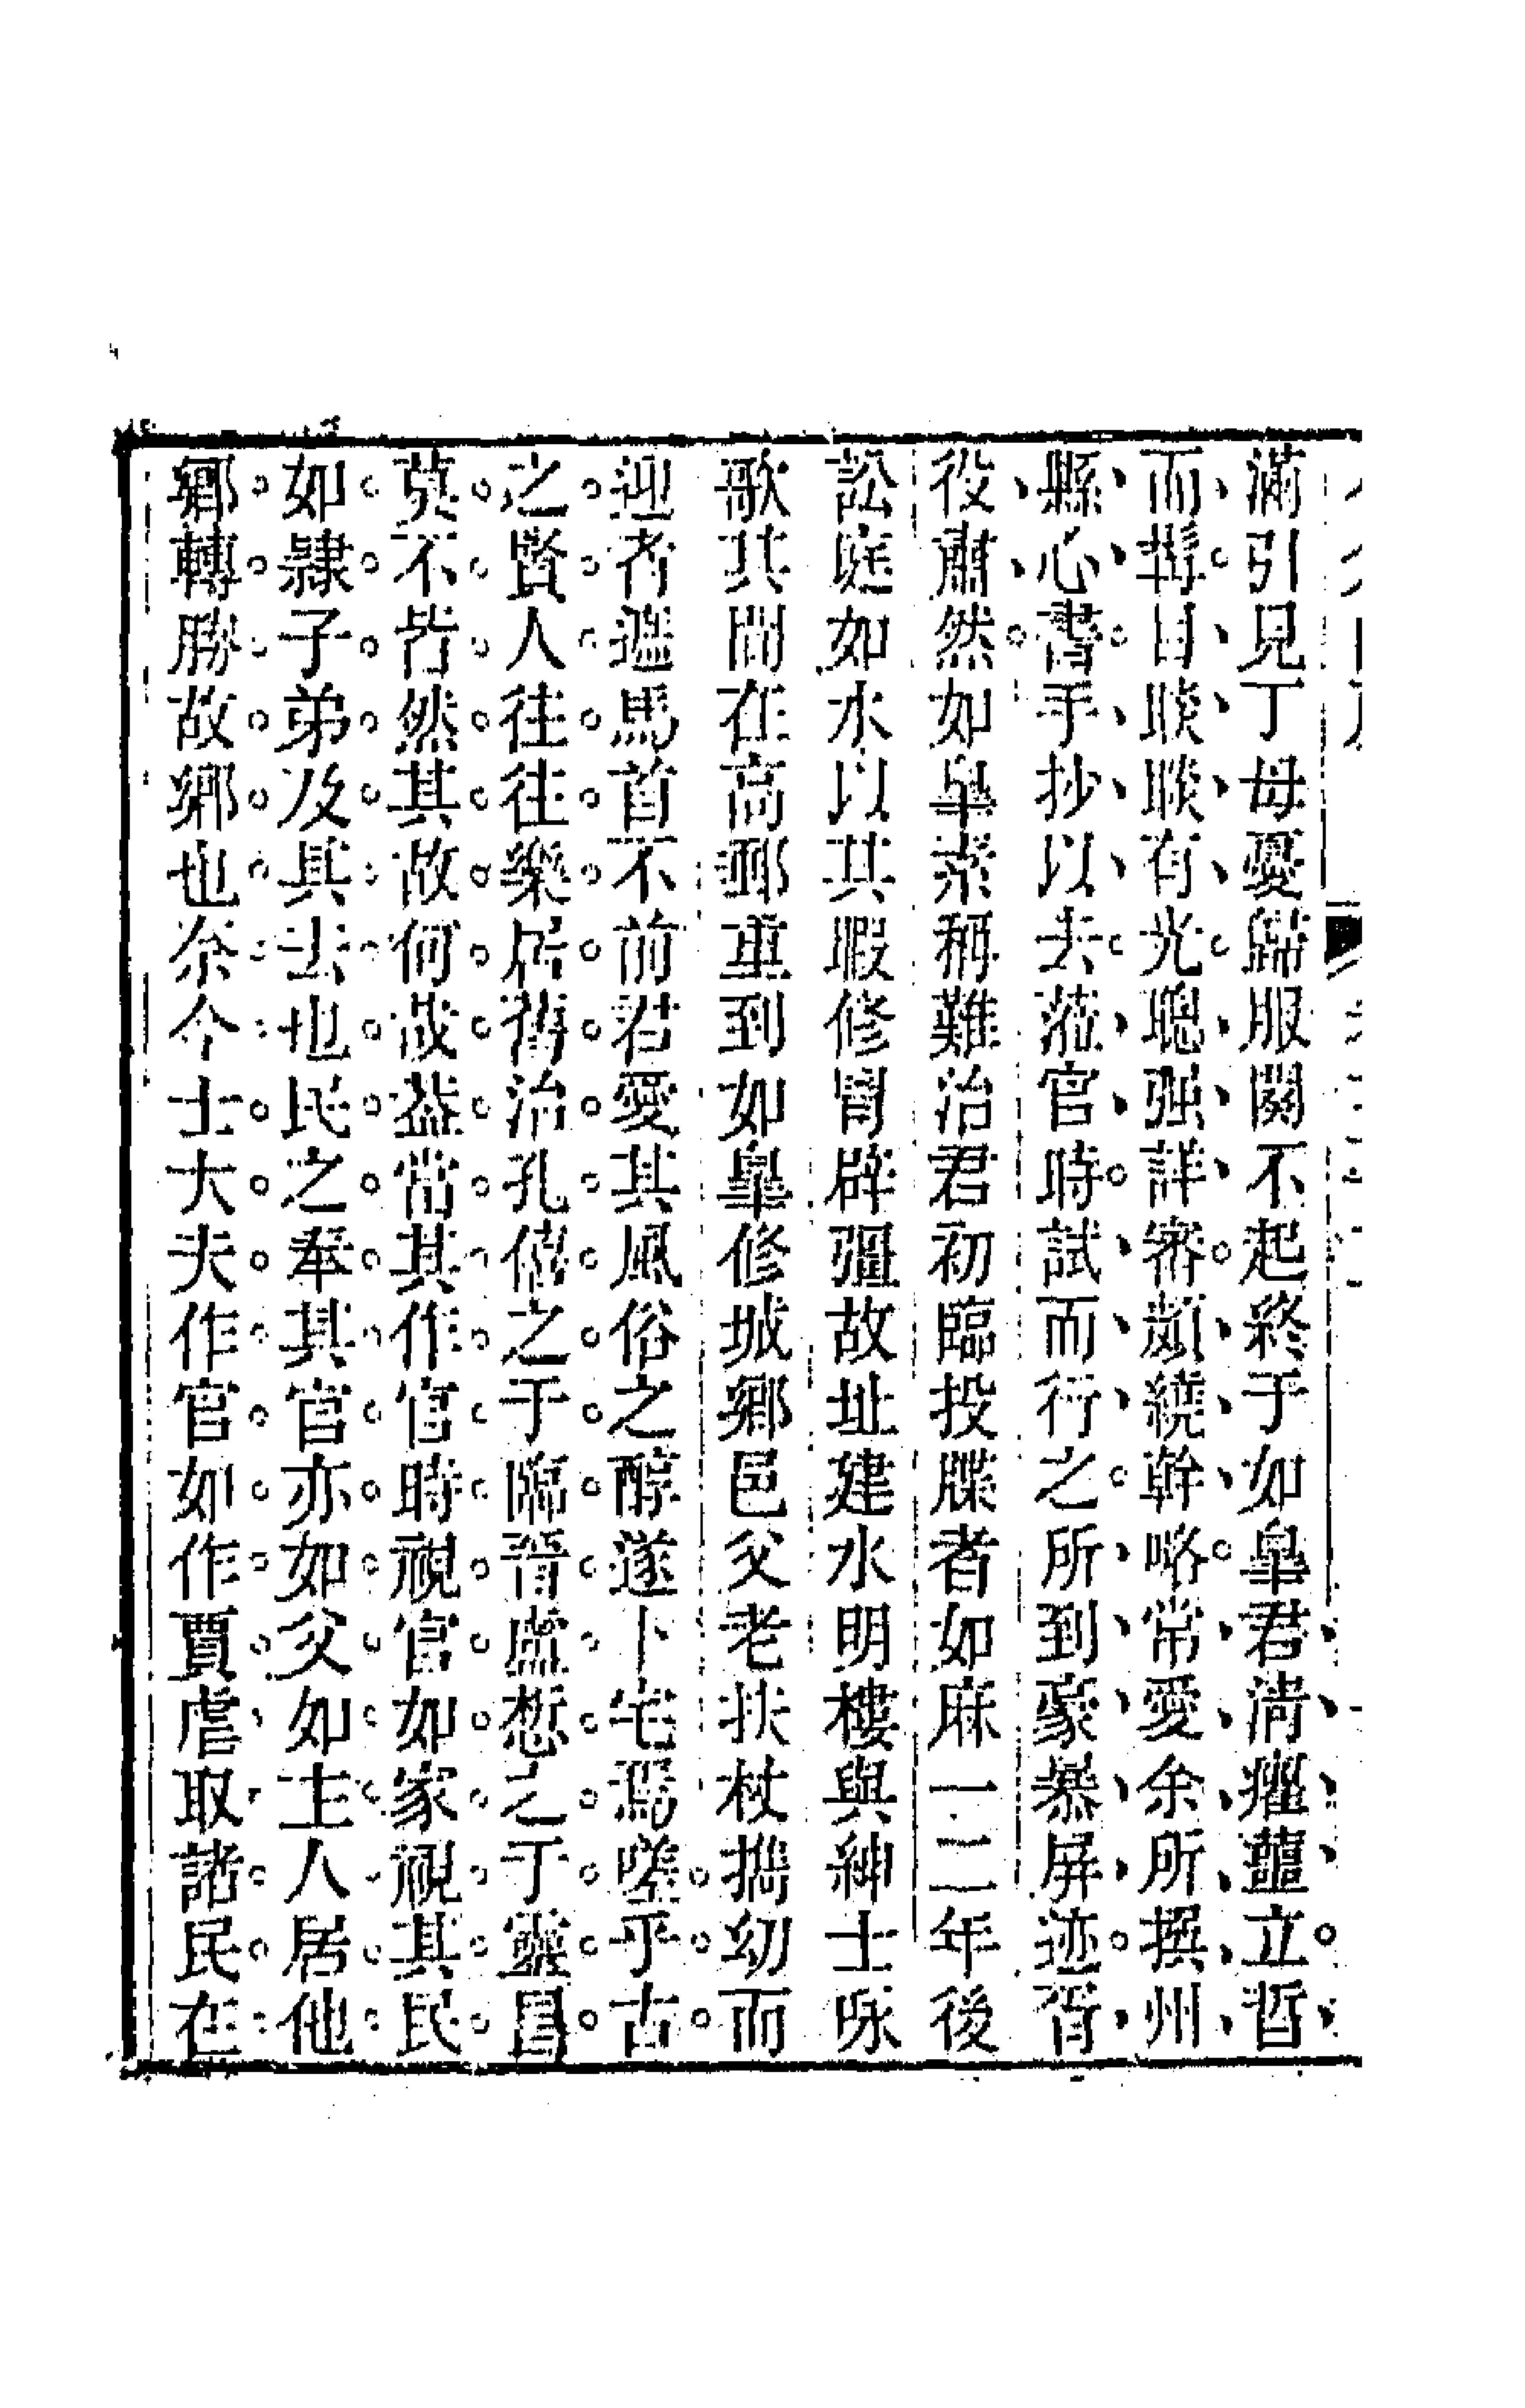 滿引見丁母憂歸服闋不起終于如臯君淸癯立晳
而髯目睒睒有光聰强詳審頗繞幹略常愛余所撰州
縣心書手抄以去蒞官時試而行之所到豪暴屏迹胥
役肅然如臯素稱難治君初臨投牒者如麻一二年後
訟庭如水以其暇修冐辟疆故址建水明樓與紳士咏
歌其間在高郵重到如臯修城鄉邑父老扶杖擕幼而
迎者馬首不前君愛其風俗之醇遂卜宅焉嗟乎古
之賢人往往樂居舊治孔僖之于臨晉盧愻之于靈昌
莫不皆然其故何哉葢當其作官時視官如家視其民
如隸子弟及其去也民之奉其官亦如父如主人居他
鄉轉勝故鄉也奈今士大夫作官如作賈虐取諸民在